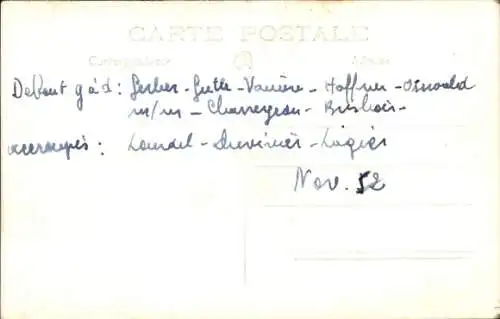 CARTE POSTALE
Correspondance Adresse
Debout g à d : Gerber - Gutte - Vanière - Hoffner - Oswald
m/m - Charreyron - Brisbois -
accroupis : Lourdel - Duvivier - Logier
Nov. 52